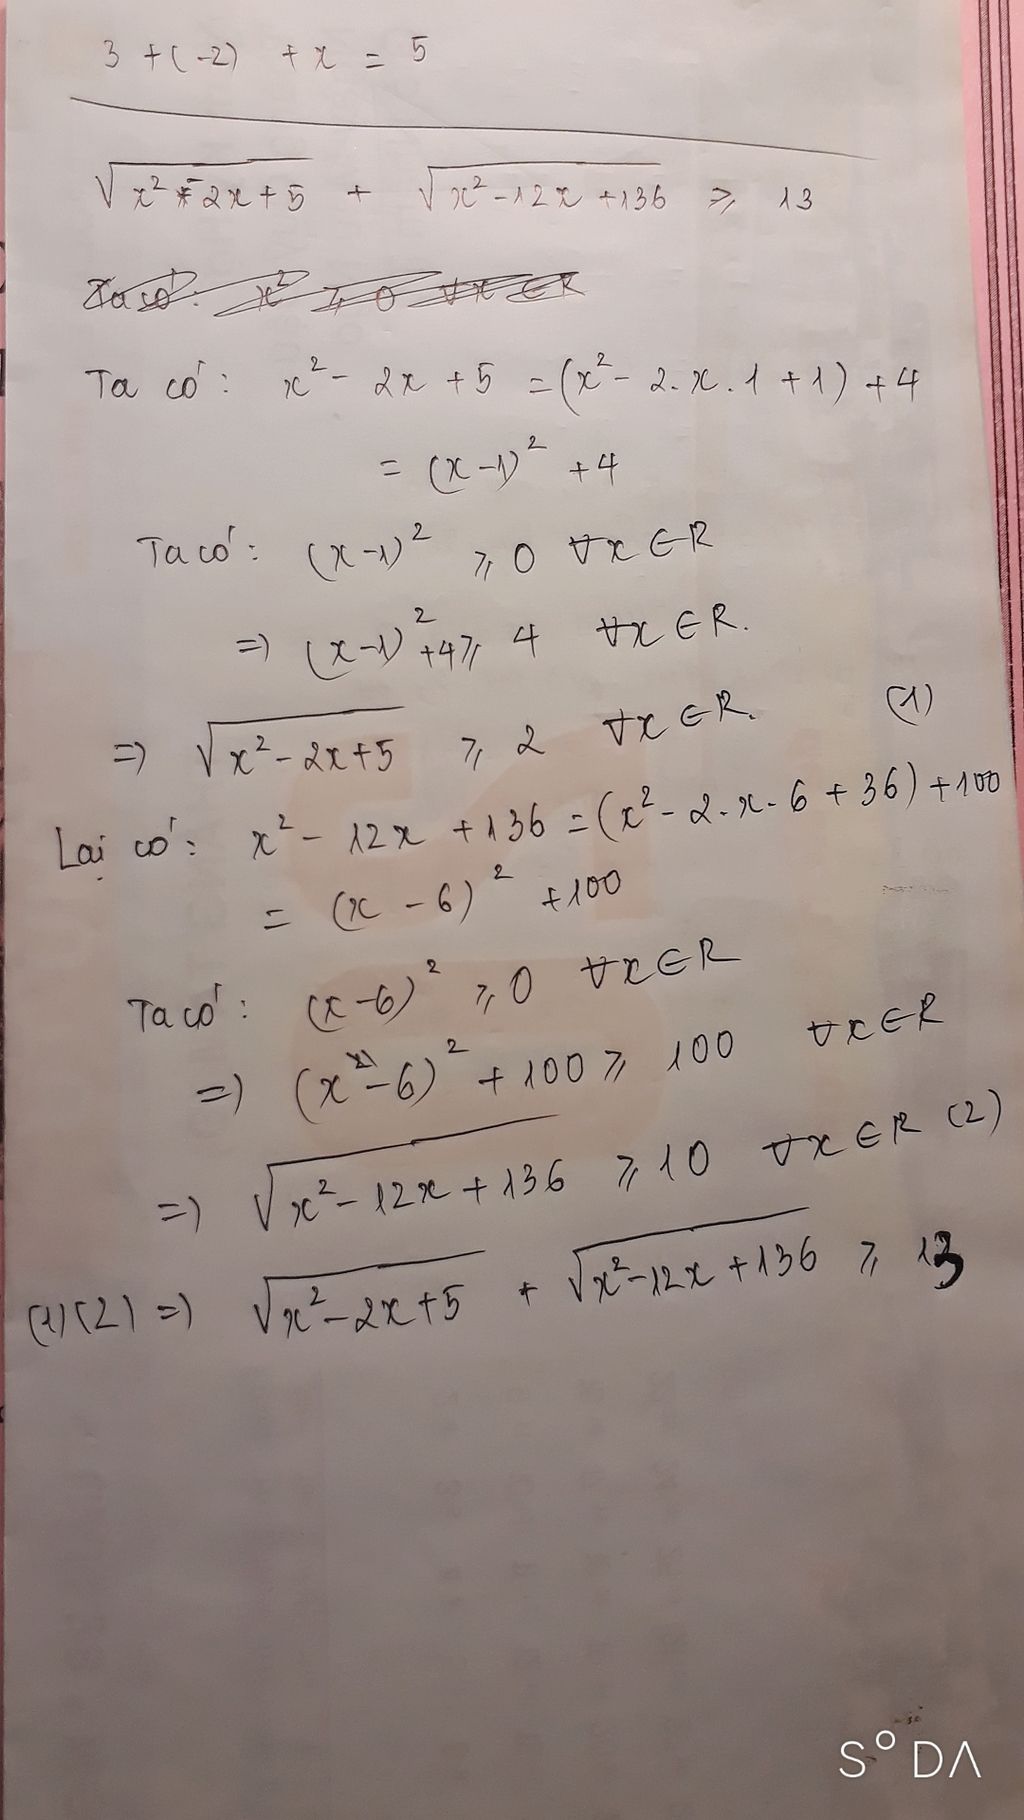 3 + (-2) + x = 5
√(x² - 2x + 5) + √(x² - 12x + 136) ⩾ 13
Ta có: x² ⩾ 0 ∀x ∈ R
Ta có: x² - 2x + 5 = (x² - 2.x.1 + 1) + 4
= (x - 1)² + 4
Ta có: (x - 1)² ⩾ 0 ∀x ∈ R
=> (x - 1)² + 4 ⩾ 4 ∀x ∈ R.
=> √(x² - 2x + 5) ⩾ 2 ∀x ∈ R. (1)
Lại có: x² - 12x + 136 = (x² - 2.x.6 + 36) + 100
= (x - 6)² + 100
Ta có: (x - 6)² ⩾ 0 ∀x ∈ R
=> (x - 6)² + 100 ⩾ 100 ∀x ∈ R
=> √(x² - 12x + 136) ⩾ 10 ∀x ∈ R (2)
(1)(2) => √(x² - 2x + 5) + √(x² - 12x + 136) ⩾ 13
SODA